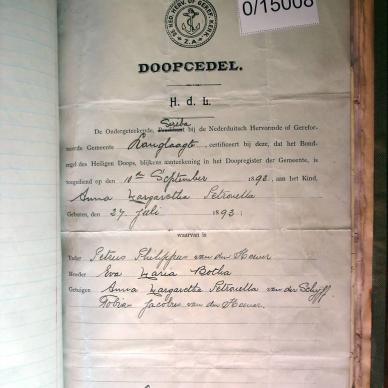 0/15008
DE NED. HERV. OF GEREF. KERK
Z.A.
DOOPCEDEL.
H. d. L.
Scriba
De Ondergeteekende, Predikant bij de Nederduitsch Hervormde of Gerefor-
meerde Gemeente Langlaagte, certificeert bij deze, dat het Bond-
zegel des Heiligen Doops, blijkens aanteekening in het Doopregister der Gemeente, is
toegediend op den 10de September 1893, aan het Kind,
Anna Margaretha Petronella
Geboren, den 27 Juli 1893.
waarvan is
Vader Petrus Philippus van der
Moeder Eva Maria Botha
Getuigen Anna Margaretha Petronella van der Schyff
Tobias Jacobus van der